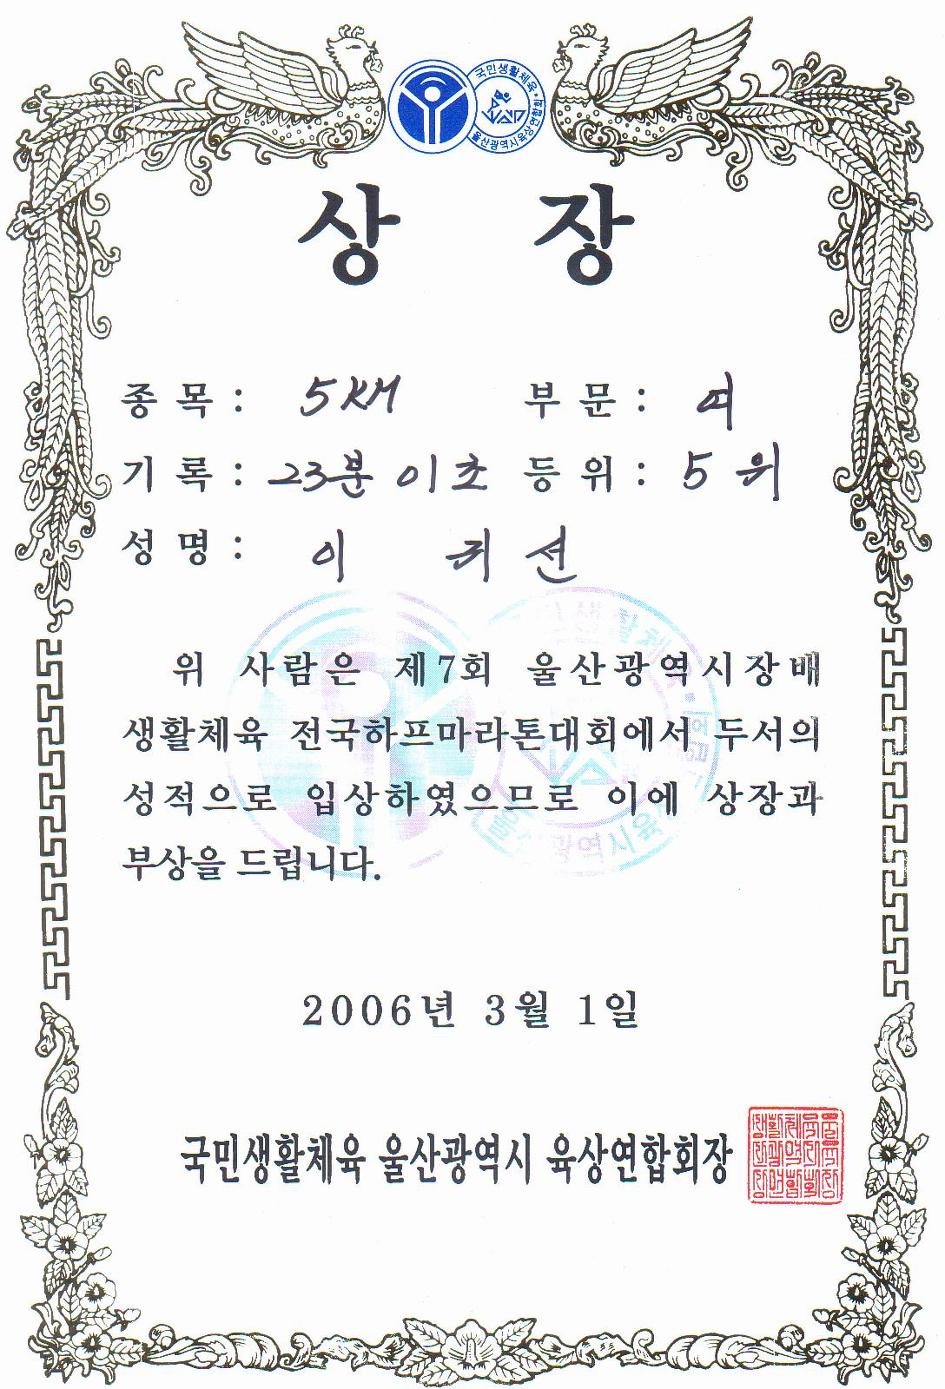 국민생활체육
울산광역시육상연합회
상 장
종 목 : 5KM 부 문 : 여
기 록 : 23분 01초 등 위 : 5위
성 명 : 이 귀 선
위 사람은 제7회 울산광역시장배
생활체육 전국하프마라톤대회에서 두서의
성적으로 입상하였으므로 이에 상장과
부상을 드립니다.
2006년 3월 1일
국민생활체육 울산광역시 육상연합회장